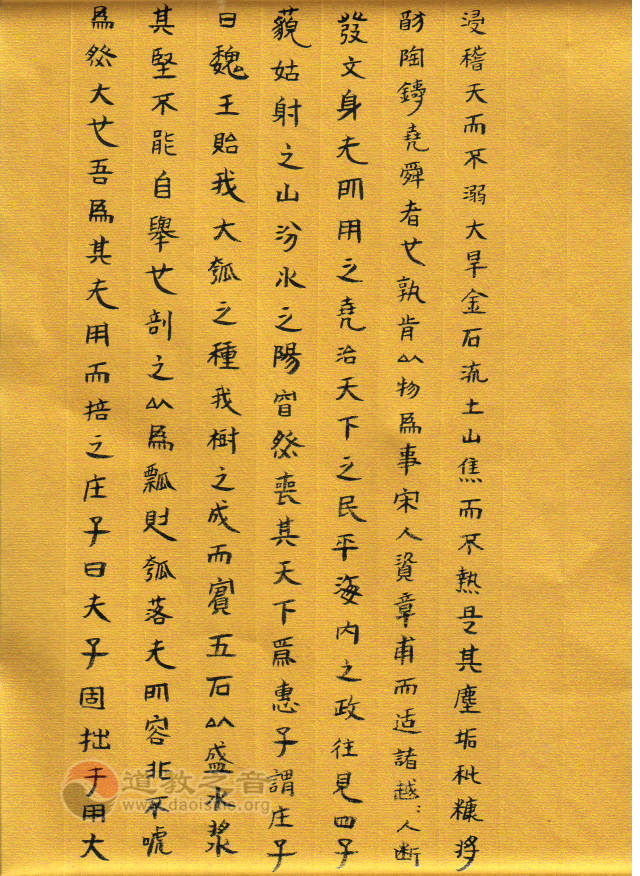 浸稽天而不溺大旱金石流土山焦而不熱是其塵垢秕糠將
猶陶鑄堯舜者也孰肯以物為事宋人資章甫而适諸越:人断
發文身无所用之堯治天下之民平海内之政往見四子
藐姑射之山汾水之陽窅然喪其天下焉惠子謂庄子
曰魏王貽我大瓠之種我樹之成而實五石以盛水漿
其堅不能自舉也剖之以為瓢則瓠落无所容非不唬
為然大也吾為其无用而掊之庄子曰夫子固拙于用大
道教之音
www.daoisms.org